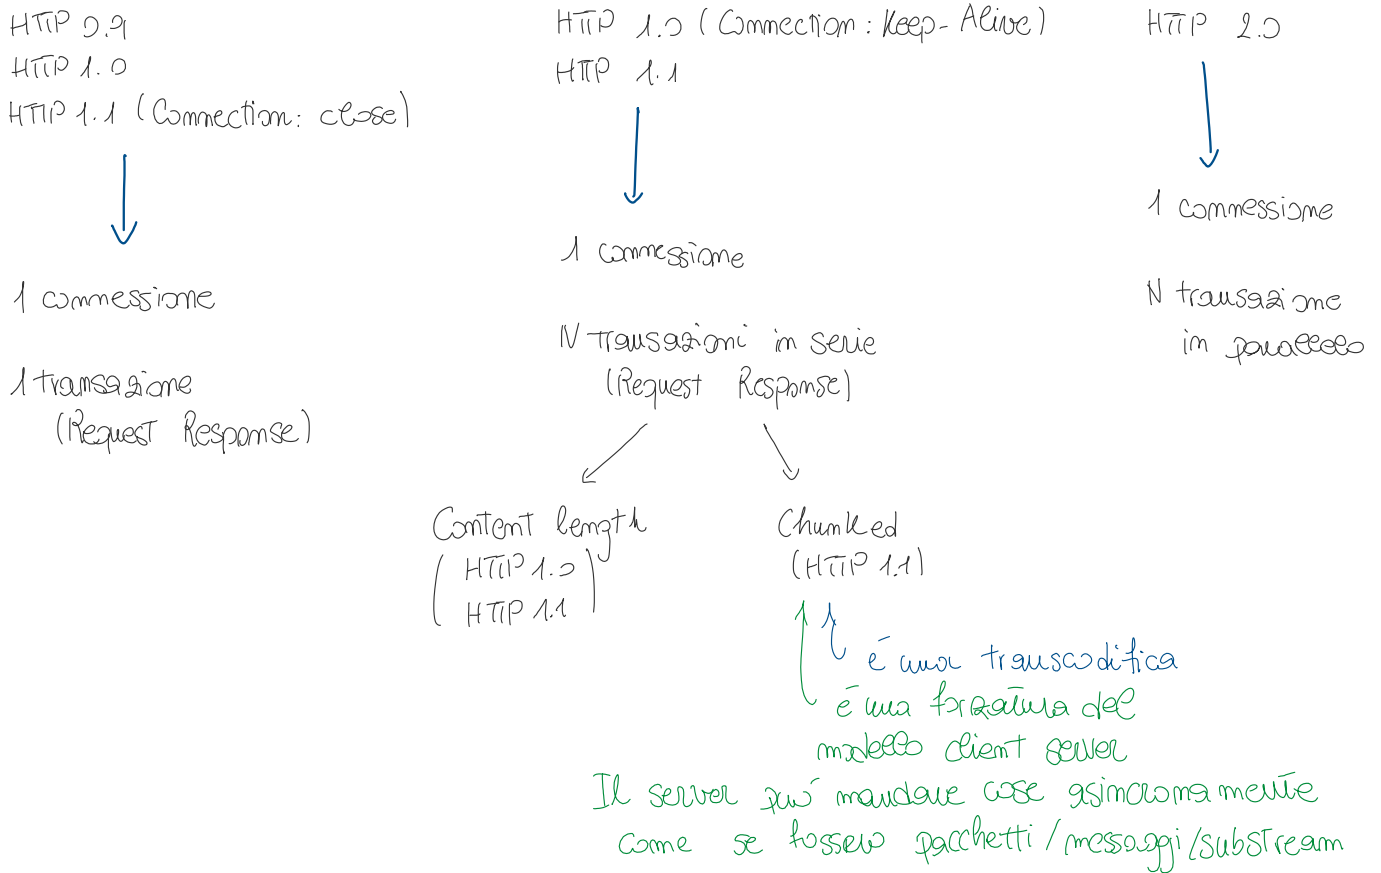 HTTP 0.9
HTTP 1.0
HTTP 1.1 (Connection: close)
1 connessione
1 transazione
(Request Response)
HTTP 1.0 (Connection: Keep-Alive)
HTTP 1.1
1 connessione
N transazioni in serie
(Request Response)
Content length
(HTTP 1.0
HTTP 1.1)
Chunked
(HTTP 1.1)
é una transcodifica
é una forzatura del
modello client server
Il server può mandare cose asincronamente
come se fossero pacchetti/messaggi/substream
HTTP 2.0
1 connessione
N transazione
in parallelo